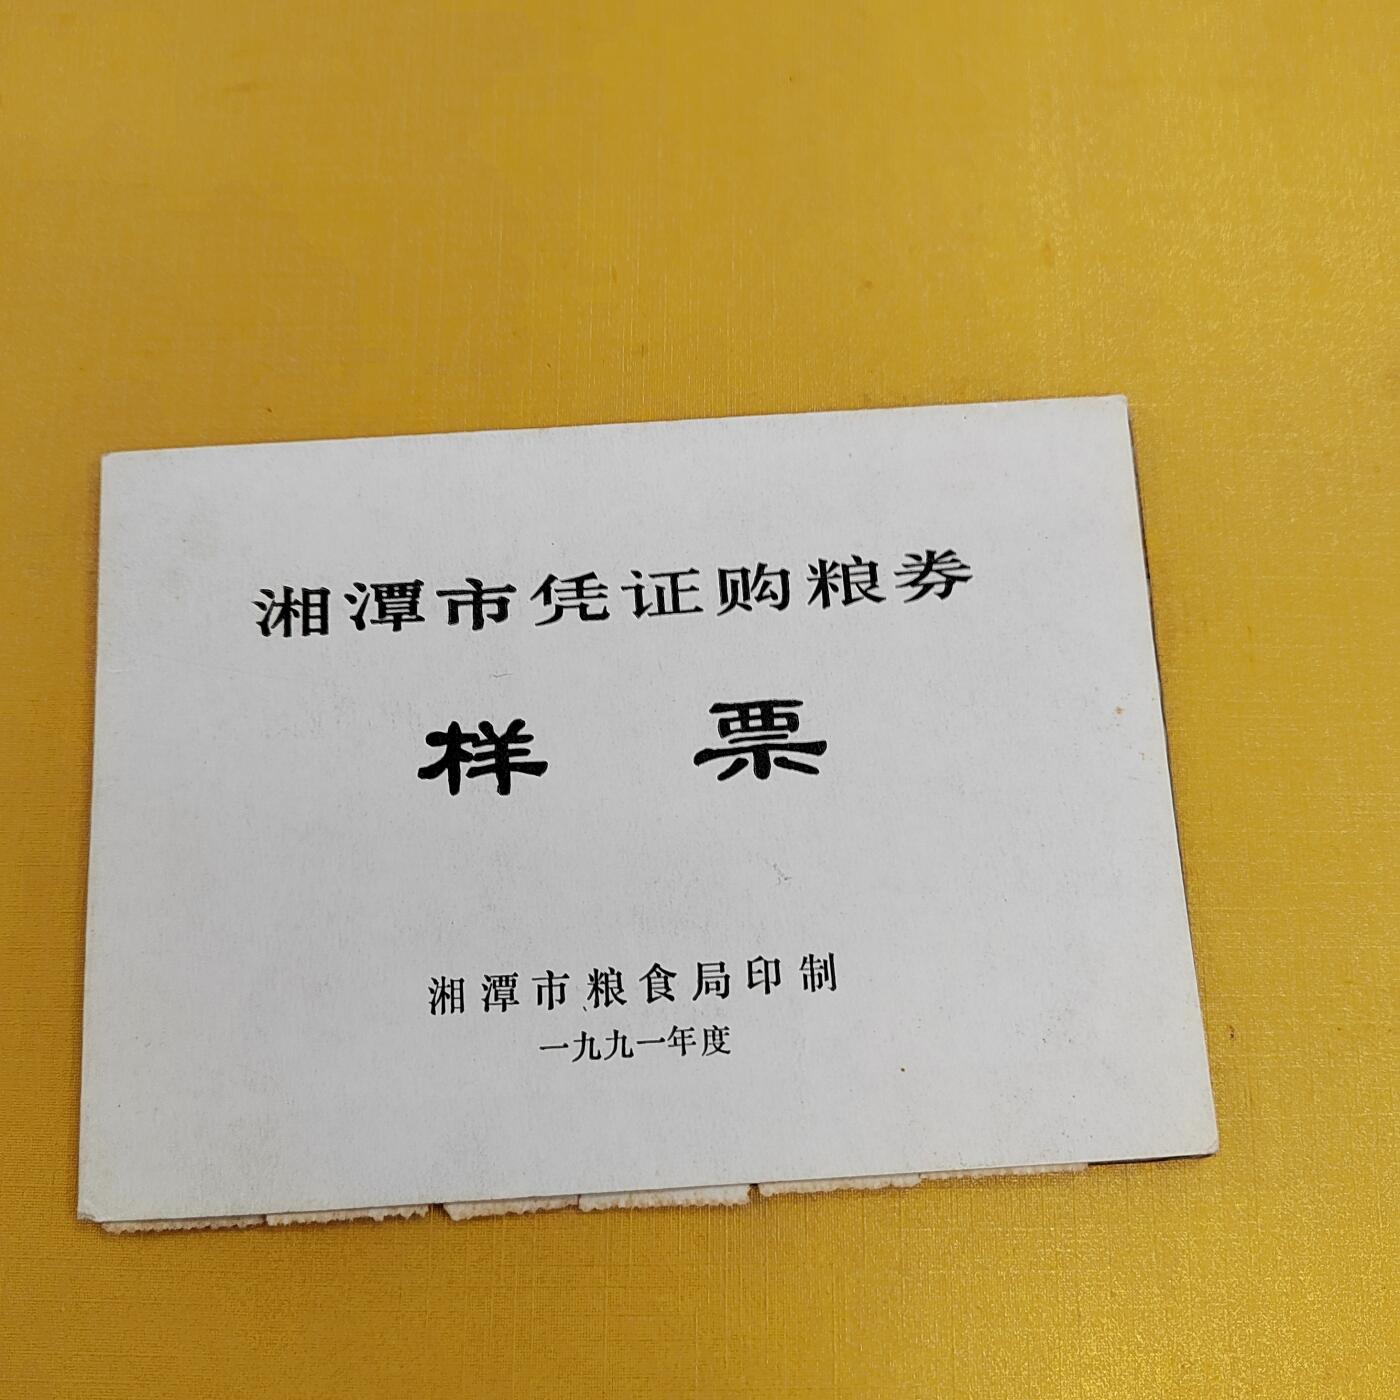 湘潭市凭证购粮券
样票
湘潭市粮食局印制
一九九一年度